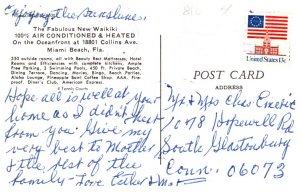 "Enjoying the Sunshine."
The Fabulous New Waikiki
100% AIR CONDITIONED & HEATED
On the Oceanfront at 18801 Collins Ave.
Miami Beach, Fla.
350 outside rooms, all with Beauty Rest Mattresses, Hotel
Rooms and Efficiencies with complete kitchens. Ample
Parking, 3 Swimming Pools, 450 ft. Private Beach,
Dining Terrace, Dancing, Movies, Bingo, Beach Parties,
Aloha Lounge, Pineapple Bowl Coffee Shop, AAA, Fine-
dinner Club, American Express
Hope all is well at your
home as I didn't hear
from you. Give my
very best to Mother
& the rest of the
family - Love Esther &
POST CARD
ADDRESS
US Postage
United States 13c
Mr & Mrs Chas
1078 Hopewell Rd
South Glastonbury
Conn. 06073